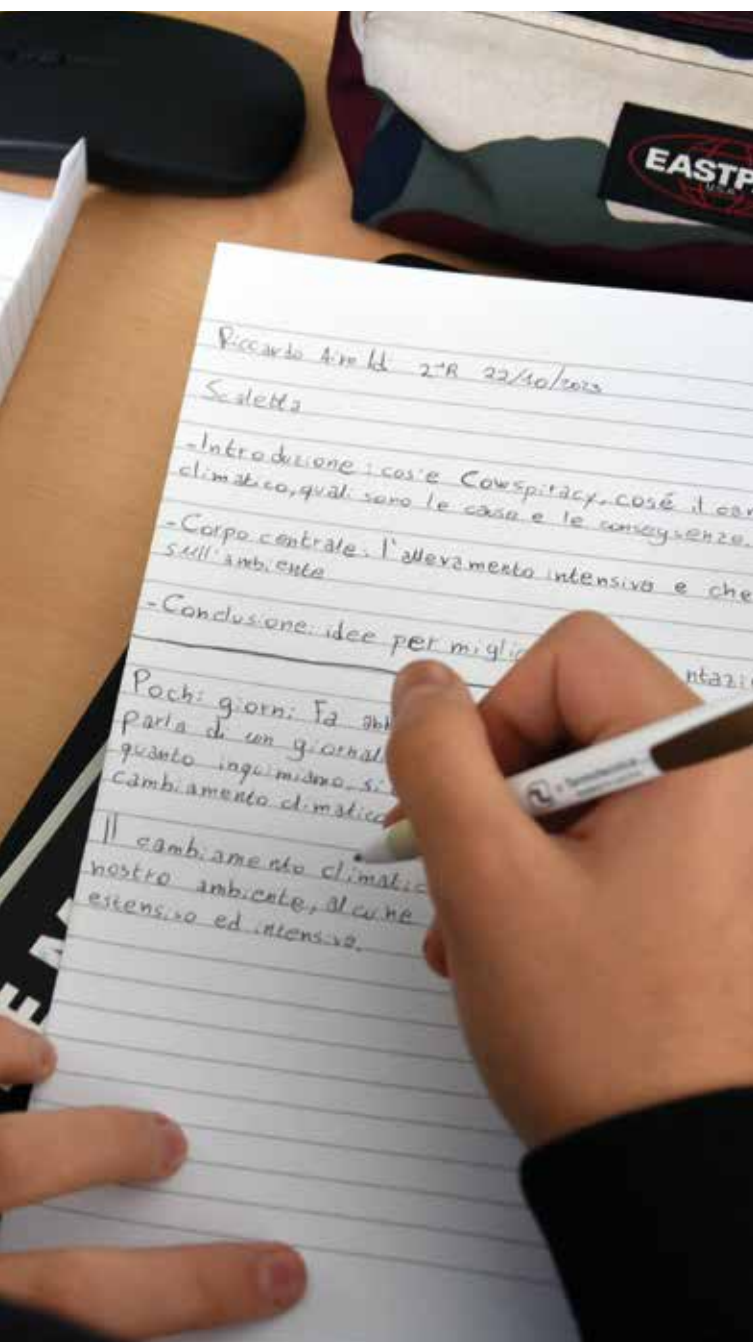 EASTP
USA
Riccardo Airoldi 2^R 22/10/2023
Scaletta
-Introduzione: cos'e Cowspiracy, cosé il cam
climatico, quali sono le cause e le conseguenze.
-Corpo centrale: l'allevamento intensivo e che
sull'ambiente
-Conclusione: idee per miglio ntazi
Pochi giorni fa abb
parla di un giornal
quanto inquiniamo, si
cambiamento climatico
Il cambiamento climatic
nostro ambiente, alcune
estensivo ed intensivo.